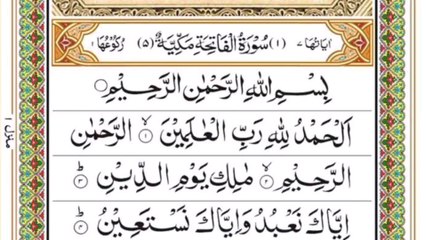 اٰیَاتُهَا ۷ (۱) سُوْرَةُ الْفَاتِحَةِ مَکِّیَّةٌ (۵) رُکُوْعُهَا ۱
بِسْمِ اللّٰهِ الرَّحْمٰنِ الرَّحِیْمِ
اَلْحَمْدُ لِلّٰهِ رَبِّ الْعٰلَمِیْنَ ۙ﴿۱﴾ الرَّحْمٰنِ
الرَّحِیْمِ ۙ﴿۲﴾ مٰلِكِ یَوْمِ الدِّیْنِ ؕ﴿۳﴾
اِیَّاكَ نَعْبُدُ وَاِیَّاكَ نَسْتَعِیْنُ ؕ﴿۴﴾
منزل ۱